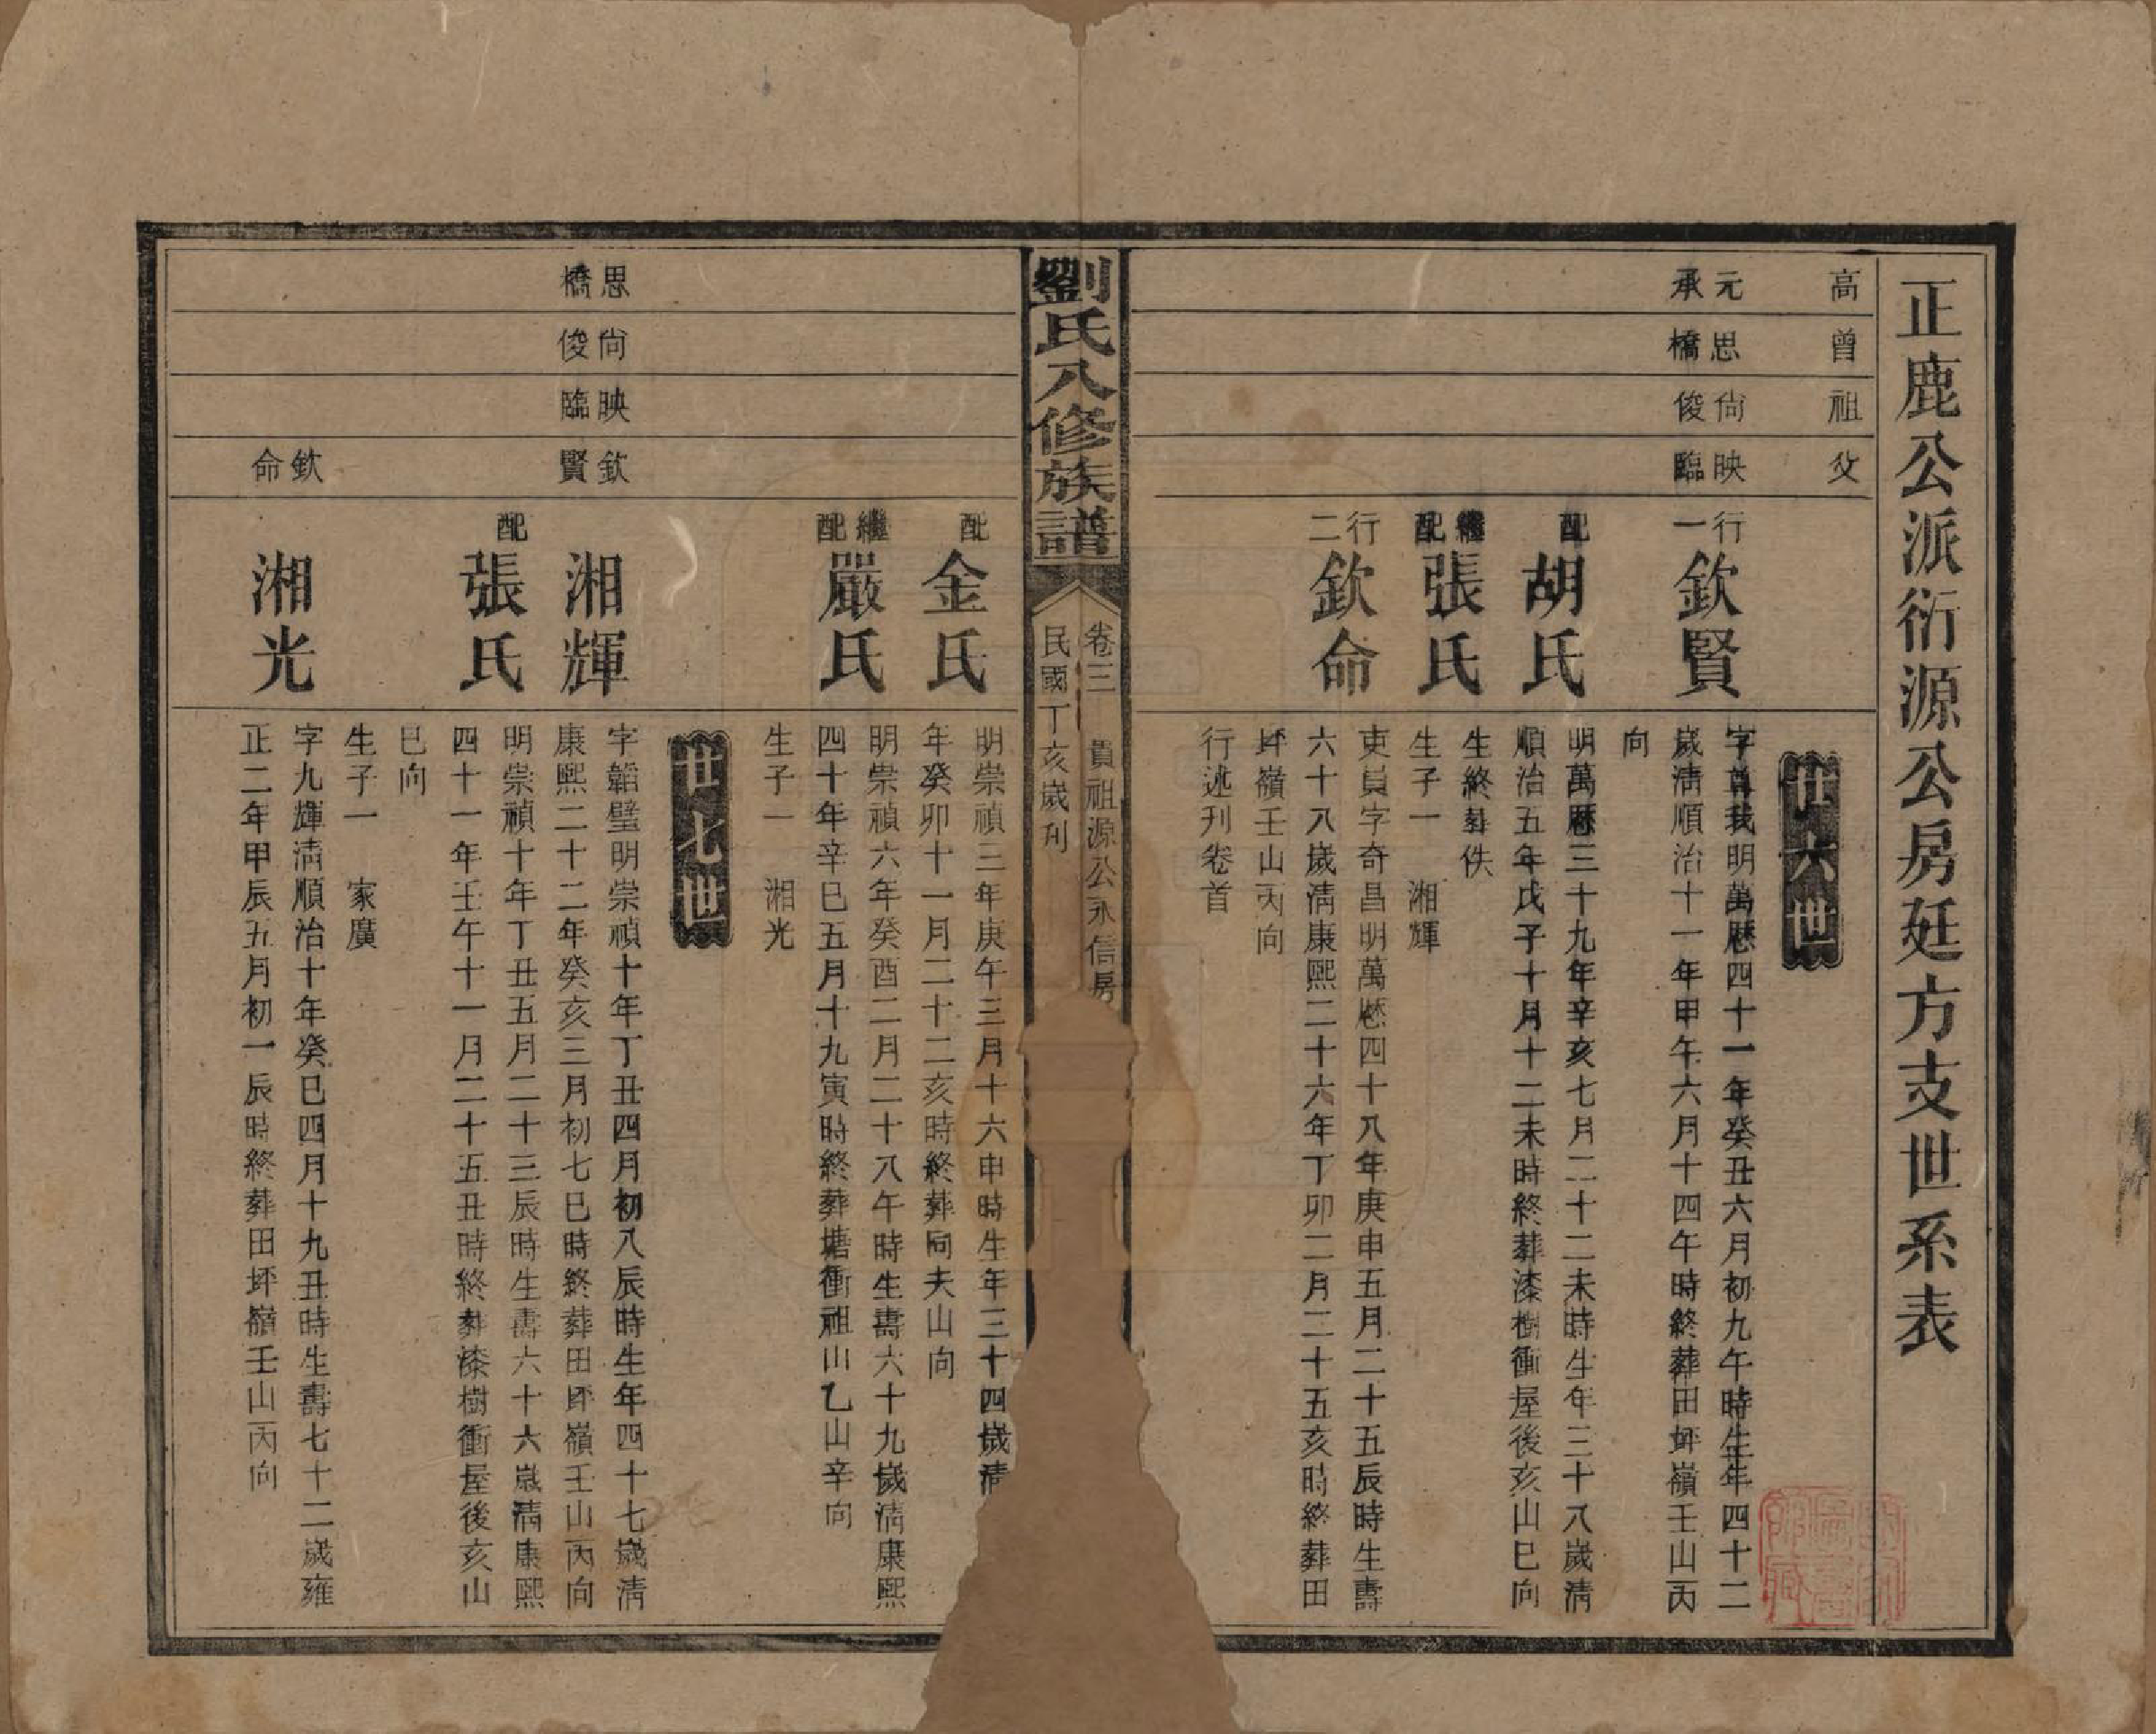 正鹿公派衍源公房廷方支世系表
高 曾 祖 父
廿六世
元承 思橋 尙俊 映臨
行一 欽賢
字尊我明萬厯四十一年癸丑六月初九午時生年四十二
歲淸順治十一年甲午六月十四午時終葬田坪嶺壬山丙
向
配 胡氏
明萬厯三十九年辛亥七月二十二未時生年三十八歲淸
順治五年戊子十月十二未時終葬漆樹衝屋後亥山巳向
繼配 張氏
生終葬佚
生子一 湘輝
行二 欽命
吏員字奇昌明萬厯四十八年庚申五月二十五辰時生壽
六十八歲淸康熙二十六年丁卯二月二十五亥時終葬田
坪嶺壬山丙向
行述刋卷首
劉氏八修族譜
卷三 貫祖源公永信房
民國丁亥歲刋
配 金氏
明崇禎三年庚午三月十六申時生年三十四歲淸
年癸卯十一月二十二亥時終葬同夫山向
繼配 嚴氏
明崇禎六年癸酉二月二十八午時生壽六十九歲淸康熙
四十年辛巳五月十九寅時終葬塘衝祖山乙山辛向
生子一 湘光
廿七世
思橋 尙俊 映臨 欽賢
湘輝
字韜璧明崇禎十年丁丑四月初八辰時生年四十七歲淸
康熙二十二年癸亥三月初七巳時終葬田坪嶺壬山丙向
配 張氏
明崇禎十年丁丑五月二十三辰時生壽六十六歲淸康熙
四十一年壬午十一月二十五丑時終葬漆樹衝屋後亥山
巳向
生子一 家廣
欽命
湘光
字九輝淸順治十年癸巳四月十九丑時生壽七十二歲雍
正二年甲辰五月初一辰時終葬田坪嶺壬山丙向